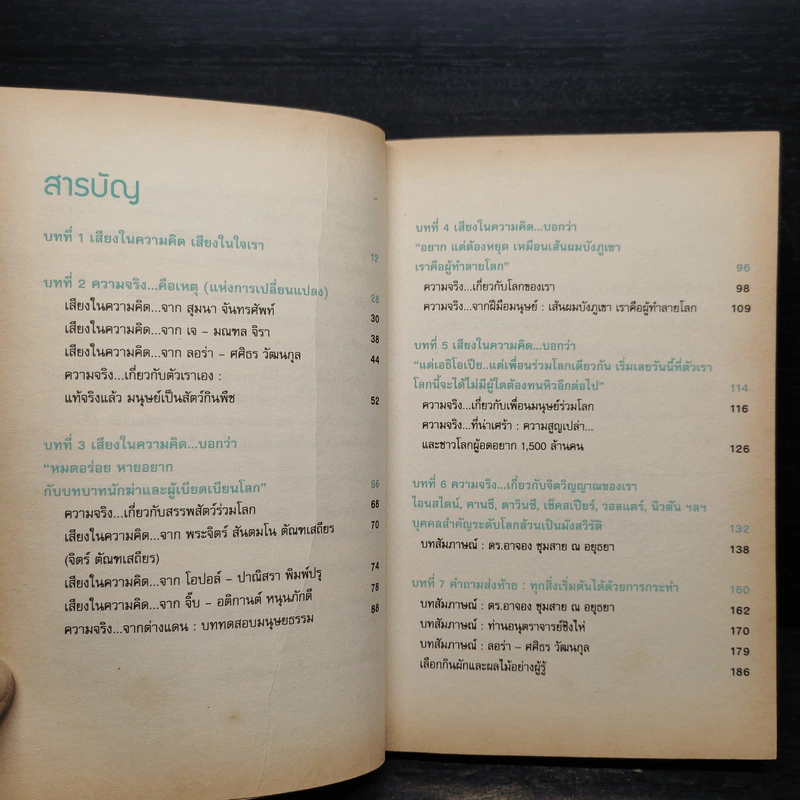 สารบัญ
บทที่ 1 เสียงในความคิด เสียงในใจเรา 12
บทที่ 2 ความจริง...คือเหตุ (แห่งการเปลี่ยนแปลง) 28
เสียงในความคิด...จาก สุมนา จันทรศัพท์ 30
เสียงในความคิด...จาก เจ – มณฑล จิรา 38
เสียงในความคิด...จาก ลอร่า – ศศิธร วัฒนกุล 44
ความจริง...เกี่ยวกับตัวเราเอง :
แท้จริงแล้ว มนุษย์เป็นสัตว์กินพืช 52
บทที่ 3 เสียงในความคิด...บอกว่า
“หมดอร่อย หายอยาก
กับบทบาทนักฆ่าและผู้เบียดเบียนโลก” 66
ความจริง...เกี่ยวกับสรรพสัตว์ร่วมโลก 68
เสียงในความคิด...จาก พระจิตร์ สันตมโน ตัณฑเสถียร 70
(จิตร์ ตัณฑเสถียร)
เสียงในความคิด...จาก โอปอล์ – ปาณิสรา พิมพ์ปรุ 74
เสียงในความคิด...จาก จิ๊บ – อติกานต์ หนุนภักดี 78
ความจริง...จากต่างแดน : บททดสอบมนุษยธรรม 88
บทที่ 4 เสียงในความคิด...บอกว่า
“อยาก แต่ต้องหยุด เหมือนเส้นผมบังภูเขา
เราคือผู้ทำลายโลก” 96
ความจริง...เกี่ยวกับโลกของเรา 98
ความจริง...จากฝีมือมนุษย์ : เส้นผมบังภูเขา เราคือผู้ทำลายโลก 109
บทที่ 5 เสียงในความคิด...บอกว่า
“แด่เอธิโอเปีย..แด่เพื่อนร่วมโลกเดียวกัน เริ่มเลยวันนี้ที่ตัวเรา
โลกนี้จะได้ไม่มีผู้ใดต้องทนหิวอีกต่อไป” 114
ความจริง...เกี่ยวกับเพื่อนมนุษย์ร่วมโลก 116
ความจริง...ที่น่าเศร้า : ความสูญเปล่า...
และชาวโลกผู้อดอยาก 1,500 ล้านคน 126
บทที่ 6 ความจริง...เกี่ยวกับจิตวิญญาณของเรา
ไอนสไตน์, คานธี, ดาวินชี, เช็คสเปียร์, วอลแตร์, นิวตัน ฯลฯ
บุคคลสำคัญระดับโลกล้วนเป็นมังสวิรัติ 132
บทสัมภาษณ์ : ดร.อาจอง ชุมสาย ณ อยุธยา 138
บทที่ 7 คำถามส่งท้าย : ทุกสิ่งเริ่มต้นได้ด้วยการกระทำ 160
บทสัมภาษณ์ : ดร.อาจอง ชุมสาย ณ อยุธยา 162
บทสัมภาษณ์ : ท่านอนุตราจารย์ชิงไห่ 170
บทสัมภาษณ์ : ลอร่า – ศศิธร วัฒนกุล 179
เลือกกินผักและผลไม้อย่างผู้รู้ 186